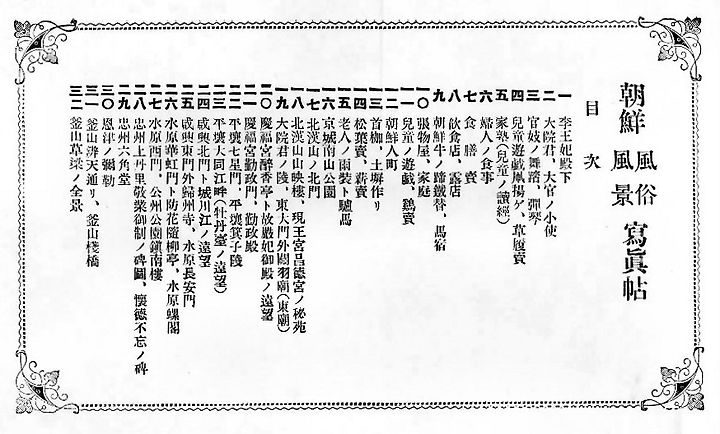 朝鮮 風俗 風景 寫眞帖
目次
一 李王妃殿下
二 大院君、大官ノ小使
三 官妓ノ舞踏、彈琴
四 兒童遊戯風揚ゲ、草履賣
五 家塾(兒童ノ讀經)
六 婦人ノ食事
七 食膳賣
八 飲食店、露店
九 朝鮮牛ノ蹄鐵替、馬宿
一〇 張物屋、家庭
一一 兒童ノ遊戯、鷄賣
一二 朝鮮人町
一三 首枷、土塀作リ
一四 松葉賣、薪賣
一五 老人ノ雨裝ト驢馬
一六 京城南山公園
一七 北漢山ノ北門
一八 北漢山山映樓、現王宮昌德宮ノ秘苑
一九 大院君ノ陵、東大門外關羽廟(東廟)
二〇 慶福宮醉香亭ト故嚴妃御殿ノ遠望
二一 慶福宮勤政門、勤政殿
二二 平壤七星門、平壤箕子陵
二三 平壤大同江畔(牡丹臺ノ遠望)
二四 咸興北門、城川江ノ遠望
二五 咸興東門外歸州寺、水原長安門
二六 水原華虹門ト防花隨柳亭、水原蝶閣
二七 水原西門、公州公園鎭南樓
二八 忠州上丹里敬樂御制ノ碑閣、懷德不忘ノ碑
二九 忠州六角堂
三〇 恩津ノ彌勒
三一 釜山辨天通リ、釜山棧橋
三二 釜山草梁ノ全景